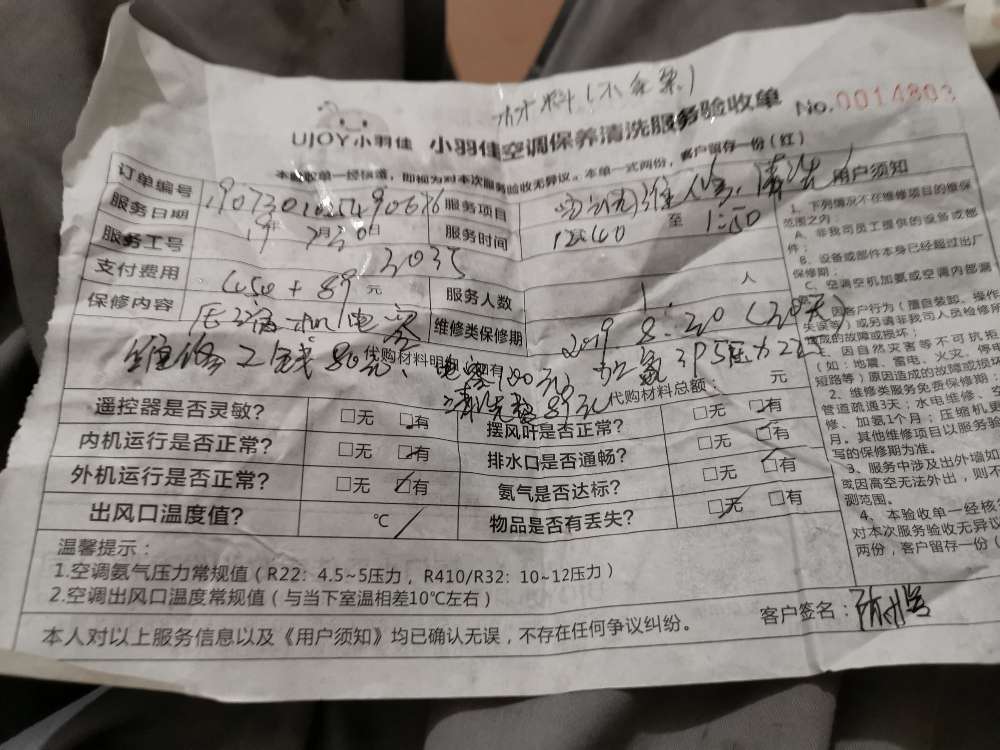 材料(不含架)
UJOY小羽佳 小羽佳空调保养清洗服务验收单 No.0014803
本验收单一经核准,即视为对本次服务验收无异议。本单一式两份,客户留存一份(红)
订单编号 服务项目 空调维修、清洗
服务日期 19年7月30日 服务时间 12:40 至 1:50
服务工号 3035
支付费用 元 服务人数 1 人
保修内容 压缩机电容 维修类保修期 2019 8.30(30天
代购材料明细
维修工钱80元、电容100元 加氨 3P5压力
清洗费89元 代购材料总额: 元
遥控器是否灵敏? □无 □有 摆风叶是否正常? □无 □有
内机运行是否正常? □无 □有 排水口是否通畅? □无 □有
外机运行是否正常? □无 □有 氨气是否达标? □无 □有
出风口温度值? ℃ 物品是否有丢失? □无 □有
温馨提示:
1.空调氨气压力常规值(R22:4.5~5压力,R410/R32:10~12压力)
2.空调出风口温度常规值(与当下室温相差10℃左右)
本人对以上服务信息以及《用户须知》均已确认无误,不存在任何争议纠纷。
客户签名:
用户须知
1、下列情况不在维修项目的维保
范围之内:
A、非我司员工提供的设备或部
件;
B、设备或部件本身已经超过出厂
保修期;
C、空调空机加氨或空调内部漏
因客户行为(擅自装卸、操作
失误等)或另请非我司人员检修所
造成的故障或损坏;
因自然灾害等不可抗拒
(如:地震、雷电、火灾、停电
短路等)原因造成的故障或损坏
2、维修类服务免费保修期:
管道疏通3天;水电维修、
修、加氨1个月;压缩机更
月。其他维修项目以服务验
写的保修期为准。
3、服务中涉及出外墙如
或因高空无法外出,则不
测范围。
4、本验收单一经核
对本次服务验收无异议
两份,客户留存一份(